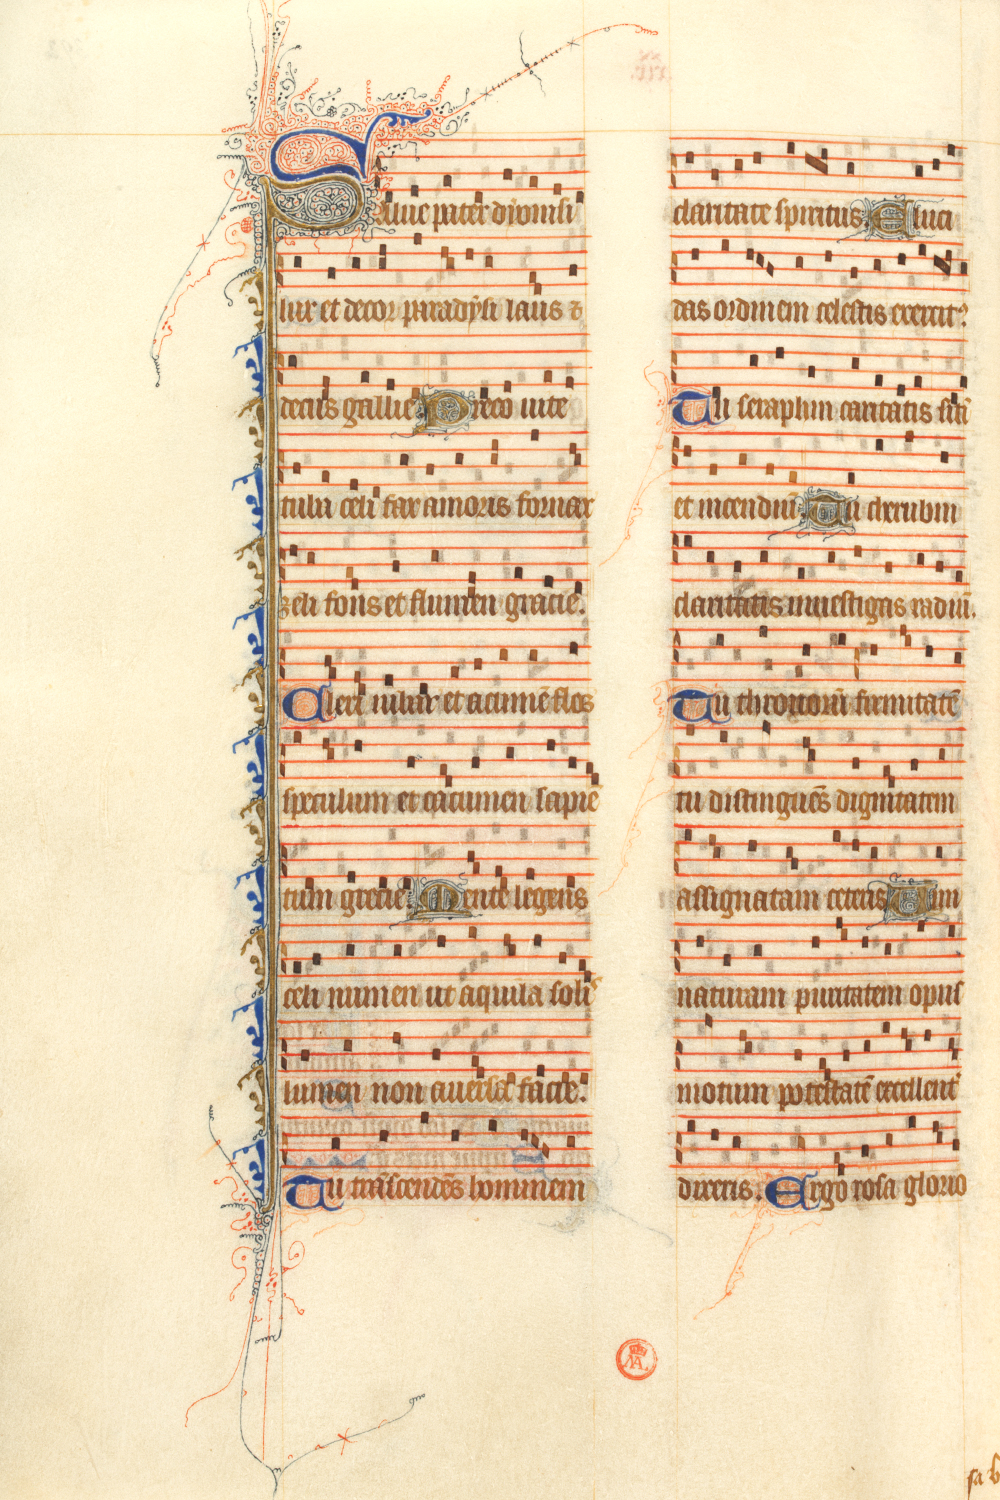 Salue pater dyonisi
lux et decor paradysi laus ⁊
decus gallie Preco uite
tuba celi fax amoris fornax
zeli fons et flumen gracie.
Cleri iubar et acumē flos
speculum et cacumen sapiē
tum grecie. Mente legens
celi numen ut aquila solis
lumen non auersa facie.
Tu trāscendēs hominem
claritate spiritus Eluci
das ordinem celestis exercit⁹
Tu seraphin caritatis sitī
et incendiū Tu cherubin
claritatis inuestigas radiū.
Tu thronorū firmitatē
tu distinguēs dignitatem
assignatam ceteris Tim
naturam puritatem opus
motum potestatē excellent᷑
dixeris. Ergo rosa glorio